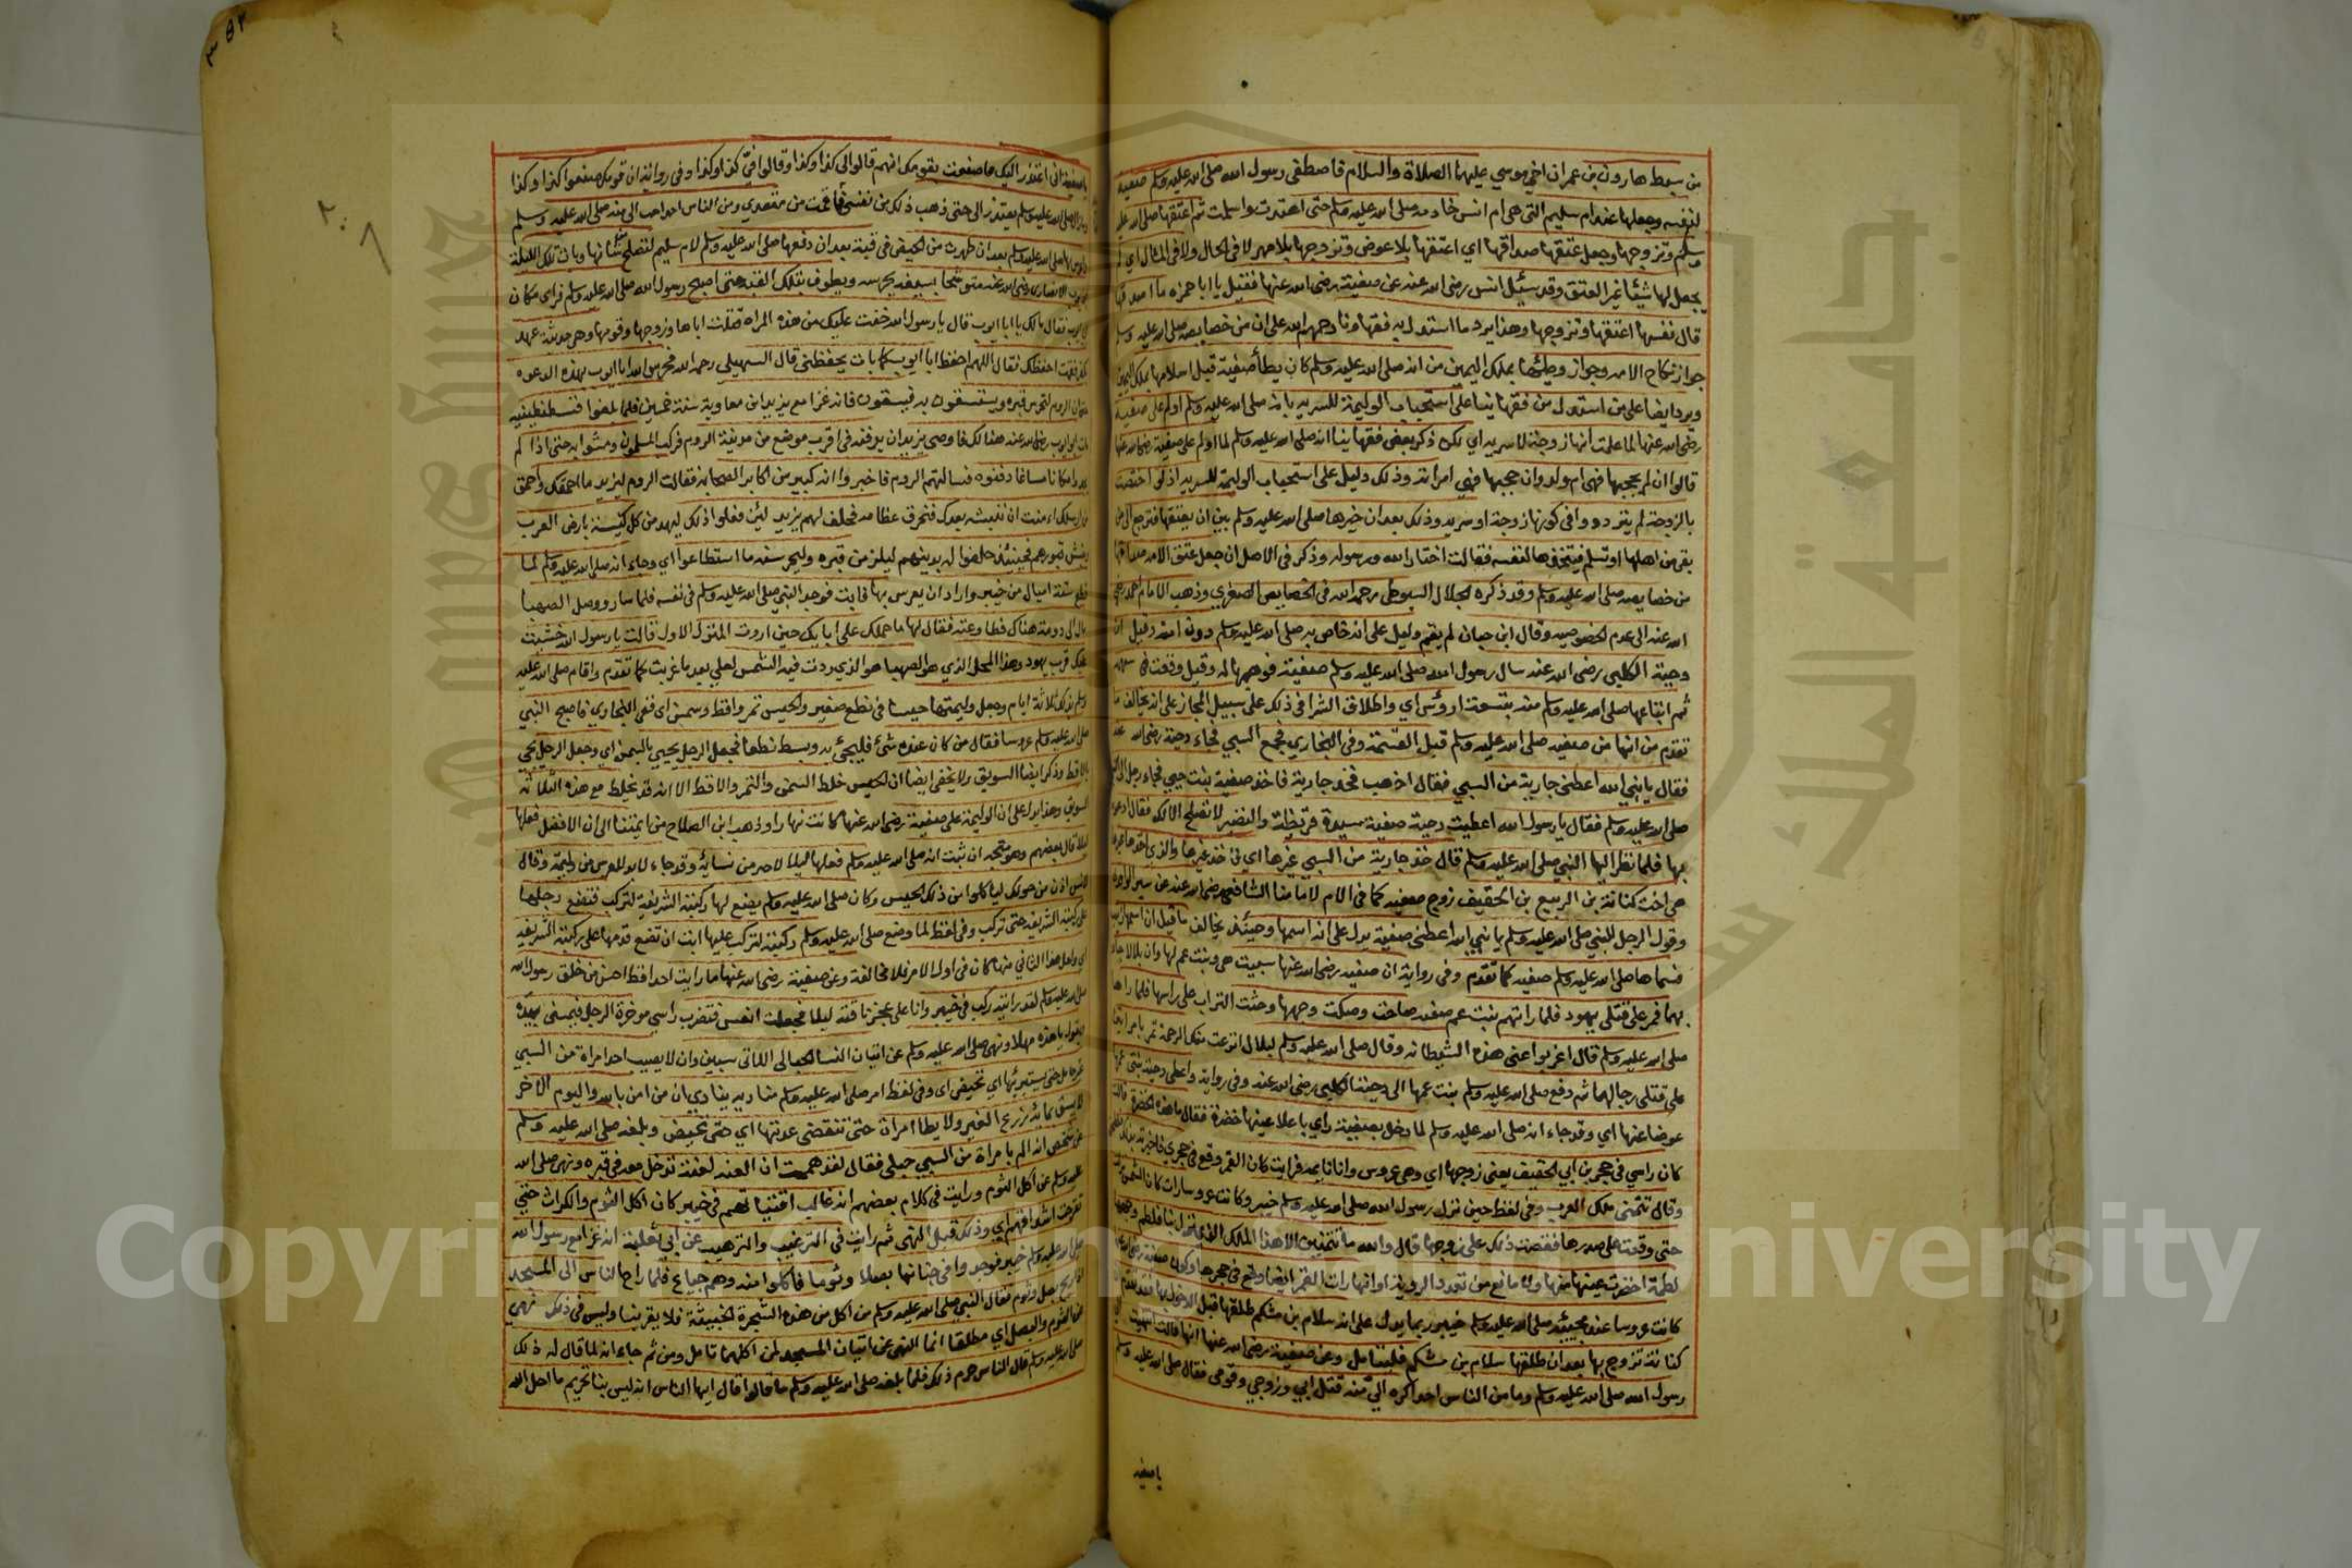 من سبط هارون بن عمران اخي موسي عليهما الصلاة والسلام فاصطفى رسول الله صلى الله عليه وسلم صفية
لنفسه وجعلها عند ام سليم التى هى ام انس خادمه صلى الله عليه وسلم حتى اهتدت واسلمت ثم اعتقها صلى الله عليه
وسلم وتزوجها وجعل عتقها صداقها اي اعتقها بلا عوض وتزوجها بلا مهر لا فى الحال ولا فى المثال اي لم
يجعل لها شيئا غير العتق وقد سئل انس رضى الله عنه عن صفية رضى الله عنها فقيل يا ابا حمزه ما اصدقها
قال نفسها اعتقها وتزوجها وهذا يرد ما استدل به فقهاونا رحمهم الله على ان من خصايصه صلى الله عليه وسلم
جواز نكاح الامه وجواز وطئها بملك اليمين من انه صلى الله عليه وسلم كان يطأ صفية قبل اسلامها بملك اليمين
ويرد ايضا على من استدل من فقهاينا على استحباب الوليمة للسريه بانه صلى الله عليه وسلم اولم على صفية
رضى الله عنها لما علمت انها زوجة لا سريه اي لكن ذكر بعض فقهاينا انه صلى الله عليه وسلم لما اولم على صفية رضى الله عنها
قالوا ان لم يحجبها فهى ام ولد وان حجبها فهي امراته وذلك دليل على استحباب الوليمة للسريه اذ لو اختصت
بالزوجة لم يترددوا فى كونها زوجة او سريه وذلك بعد ان خيرها صلى الله عليه وسلم بين ان يعتقها فترجع الى من
بقى من اهلها او تسلم فيتخذها لنفسه فقالت اختار الله ورسوله وذكر فى الاصل ان جعل عتق الامه صداقها
من خصايصه صلى الله عليه وسلم وقد ذكره الجلال السيوطى رحمه الله فى الخصايص الصغري وذهب الامام احمد رضي
الله عنه الى عدم الخصوصيه وقال ابن حبان لم يقم دليل على انه خاص به صلى الله عليه وسلم دون امته وقيل ان
دحية الكلبي رضى الله عنه سال رسول الله صلى الله عليه وسلم صفية فوهبها له وقيل وقعت فى سهمه
ثم ابتاعها صلى الله عليه وسلم منه بتسعة ارؤس اي واطلاق الشرا فى ذلك على سبيل المجاز على انه يخالف ما
تقدم من انها من صفيه صلى الله عليه وسلم قبل القسمة وفى البخاري فجمع السبي فجاء دحية رضى الله عنه
فقال يا نبي الله اعطنى جارية من السبي فقال اذهب فخذ جارية فاخذ صفية بنت حيي فجاء رجل الى النبي
صلى الله عليه وسلم فقال يا رسول الله اعطيت دحية صفية سيدة قريظة والنضير لا تصلح الا لك فقال ادعوه
بها فلما نظر اليها النبي صلى الله عليه وسلم قال خذ جارية من السبي غيرها اي فاخذ غيرها والذي اخذها غيرها
هى اخت كنانة بن الربيع بن الحقيق زوج صفيه كما فى الام لامامنا الشافعي رضى الله عنه عن سير الواقدي
وقول الرجل للنبي صلى الله عليه وسلم يا نبي الله اعطنى صفية يدل على انه اسمها وحينئذ يخالف ما قيل ان اسمها زينب
فسماها صلى الله عليه وسلم صفيه كما تقدم وفى رواية ان صفيه رضى الله عنها سبيت هى وبنت عم لها وان بلالا جاء
بهما فمر على قتلى يهود فلما راتهم بنت عم صفيه صاحت وصكت وجهها وحثت التراب على راسها فلما راها
صلى الله عليه وسلم قال اعزبوا عنى هذه الشيطانه وقال صلى الله عليه وسلم لبلال انزعت منك الرحمة تمر بامراتين
على قتلى رجالهما ثم دفع صلى الله عليه وسلم بنت عمها الى دحية الكلبي رضى الله عنه وفى رواية واعطى دحية بنتى عمها
عوضا عنها اي وقد جاء انه صلى الله عليه وسلم لما دخل بصفية راي باعلا عينها خضرة فقال ما هذه الخضرة قالت
كان راسي فى حجر بن ابي الحقيق يعنى زوجها اي وهى عروس وانا نايمه فرايت كان القمر وقع فى حجري فاخبرته بذلك فلطمنى
وقال تتمنى ملك العرب وفى لفظ حين نزل رسول الله صلى الله عليه وسلم خيبر وكانت عروسا رات كان الشمس نزلت
حتى وقعت على صدرها فقصت ذلك على زوجها قال والله ما تتمنين الا هذا الملك الذي نزل بنا فلطم وجهها
لطمة اخضرت عينها منها ولا مانع من تعدد الرويه او انها رات القمر ايضا وقع فى حجرها وكون صفية رضى الله عنها
كانت عروسا عند مجيئه صلى الله عليه وسلم خيبر ربما يدل على ان سلام بن مشكم طلقها قبل الدخول بها فقد تقدم ان
كنانة تزوج بها بعد ان طلقها سلام بن مشكم فليتامل وعن صفية رضى الله عنها انها قالت انتهيت الى
رسول الله صلى الله عليه وسلم وما من الناس احد اكره الي منه قتل ابي وزوجي وقومى فقال صلى الله عليه وسلم
يا صفيه
يا صفية انى اعتذر اليك ما صنعت بقومك انهم قالوا لى كذا وكذا وقالوا فيّ كذا وكذا وفى رواية ان قومك صنعوا كذا وكذا
صلى الله عليه وسلم يعتذر الى حتى ذهب ذلك من نفسى فما قمت من مقعدي ومن الناس احد احب الى منه صلى الله عليه وسلم
صلى الله عليه وسلم بعد ان طهرت من الحيض فى قبة بعد ان دفعها صلى الله عليه وسلم لام سليم لتصلح من شانها وبات تلك الليلة
ابو ايوب الانصاري رضى الله عنه متوشحا بسيفه يحرسه ويطوف بتلك القبة حتى اصبح رسول الله صلى الله عليه وسلم فراى مكان
ابي ايوب فقال مالك يا ابا ايوب قال يا رسول الله خفت عليك من هذه المراه قتلت اباها وزوجها وقومها وهى حديثة عهد
بكفر فبت احفظك فقال اللهم احفظ ابا ايوب كما بات يحفظنى قال السهيلي رحمه الله فحرس الله ابا ايوب بهذه الدعوه
حتى ان الروم لتحرس قبره ويستسقون به فيسقون فانه غزا مع يزيد ابن معاوية سنة خمسين فلما بلغوا قسطنطينيه
مات ابو ايوب رضى الله عنه هنالك فاوصى يزيد ان يدفنه فى اقرب موضع من مدينة الروم فركب المسلمون ومشوا به حتى اذا لم
يجدوا مكانا مساغا دفنوه فسالتهم الروم فاخبروا انه كبير من اكابر الصحابه فقالت الروم ليزيد ما احمقك واحمق
من ارسلك اءمنت ان ننبشه بعدك فنحرق عظامه فحلف لهم يزيد لئن فعلوا ذلك ليهدمن كل كنيسة بارض العرب
وينبش قبورهم فحينئذ حلفوا له بدينهم ليكرمن قبره وليحرسنه ما استطاعوا اي وجاء انه صلى الله عليه وسلم لما
قطع ستة اميال من خيبر واراد ان يعرس بها فابت فوجد النبي صلى الله عليه وسلم فى نفسه فلما سار ووصل الصهبا
مال الى دومة هناك فطاوعته فقال لها ما حملك على ابايك حين اردت المنزل الاول قالت يا رسول الله خشيت
عليك قرب يهود وهذا المحل الذي هو الصهبا هو الذي ردت فيه الشمس لعلى بعد ما غربت كما تقدم واقام صلى الله عليه
وسلم بذلك ثلاثة ايام وجعل وليمتها حيسا فى نطع صغير والحيس تمر واقط وسمن اى ففى البخاري فاصبح النبي
صلى الله عليه وسلم عروسا فقال من كان عنده شئ فليجئ به وبسط نطعا فجعل الرجل يجيى بالسمن اي وجعل الرجل يجي
بالاقط وذكر ايضا السويق ولا يخفى ايضا ان الحيس خلط السمن والتمر والاقط الا انه قد يخلط مع هذه الثلاثة
السويق وهذا يدل على ان الوليمة على صفية رضى الله عنها كانت نهارا وذهب ابن الصلاح من ايمتنا الى ان الافضل فعلها
ليلا قال بعضهم وهو متجه ان ثبت انه صلى الله عليه وسلم فعلها ليلا لاحد من نسائه وقد جاء لا بد للعرس من وليمة وقال
لانس اذن من حولك لياكلوا من ذلك الحيس وكان صلى الله عليه وسلم يضع لها ركبته الشريفة لتركب فتضع رجلها
على ركبته الشريفه حتى تركب وفى لفظ لما وضع صلى الله عليه وسلم ركبته لتركب عليها ابت ان تضع قدمها على ركبته الشريفه
اي ولعل هذا الثاني منها كان فى اول الامر فلا مخالفة وعن صفية رضى الله عنها ما رايت احدا قط احسن من خلق رسول الله
صلى الله عليه وسلم لقد رايته ركب فى خيبر وانا على عجز ناقته ليلا فجعلت انعس فتضرب راسي موخرة الرحل فيمسنى بيده
ويقول يا هذه مهلا ونهى صلى الله عليه وسلم عن اتيان النسا الحبالى اللاتى سبين وان لا يصيب احد امراة من السبي
غير حامل حتى يستبرئها اي تحيض اى وفى لفظ امر صلى الله عليه وسلم مناديه ينادي ان من امن بالله واليوم الاخر
لا يسق بمائه زرع الغير ولا يطا امراة حتى تنقضى عدتها اي حتى تحيض وبلغه صلى الله عليه وسلم
عن شخص انه الم بامراة من السبي حبلى فقال لقد هممت ان العنه لعنة تدخل معه فى قبره ونهى صلى الله
عليه وسلم عن اكل الثوم ورايت فى كلام بعضهم انه غالب اقتيتاتهم فى خيبر كان اكل الثوم والكراث حتى
تقرحت اشداقهم اي وذلك قبل النهى ثم رايت فى الترغيب والترهيب عن ابي ثعلبة انه غزا مع رسول الله
صلى الله عليه وسلم خيبر فوجدوا فى جنانها بصلا وثوما فاكلوا منه وهم جياع فلما راح الناس الى المسجد
اذا ريح بصل وثوم فقال النبي صلى الله عليه وسلم من اكل من هذه الشجرة الخبيثة فلا يقربنا وليس فى ذلك نهي
عن الثوم والبصل اي مطلقا انما النهى عن اتيان المسجد لمن اكلهما تامل ومن ثم جاء انه لما قال له ذلك
صلى الله عليه وسلم قال الناس حرم ذلك فلما بلغه صلى الله عليه وسلم ما قالوا قال ايها الناس انه ليس بنا تحريم ما احل الله
Copyright © King Saud University
جامعة الملك سعود